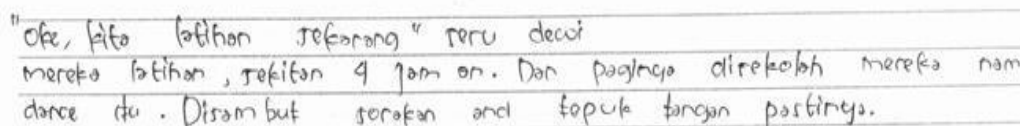 "Oke, kita latihan sekarang" seru dewi
mereka latihan, sekitan 4 jam an. Dan paginya disekolah mereka nam
dance itu. Disambut sorakan and tepuk tangan pastinya.